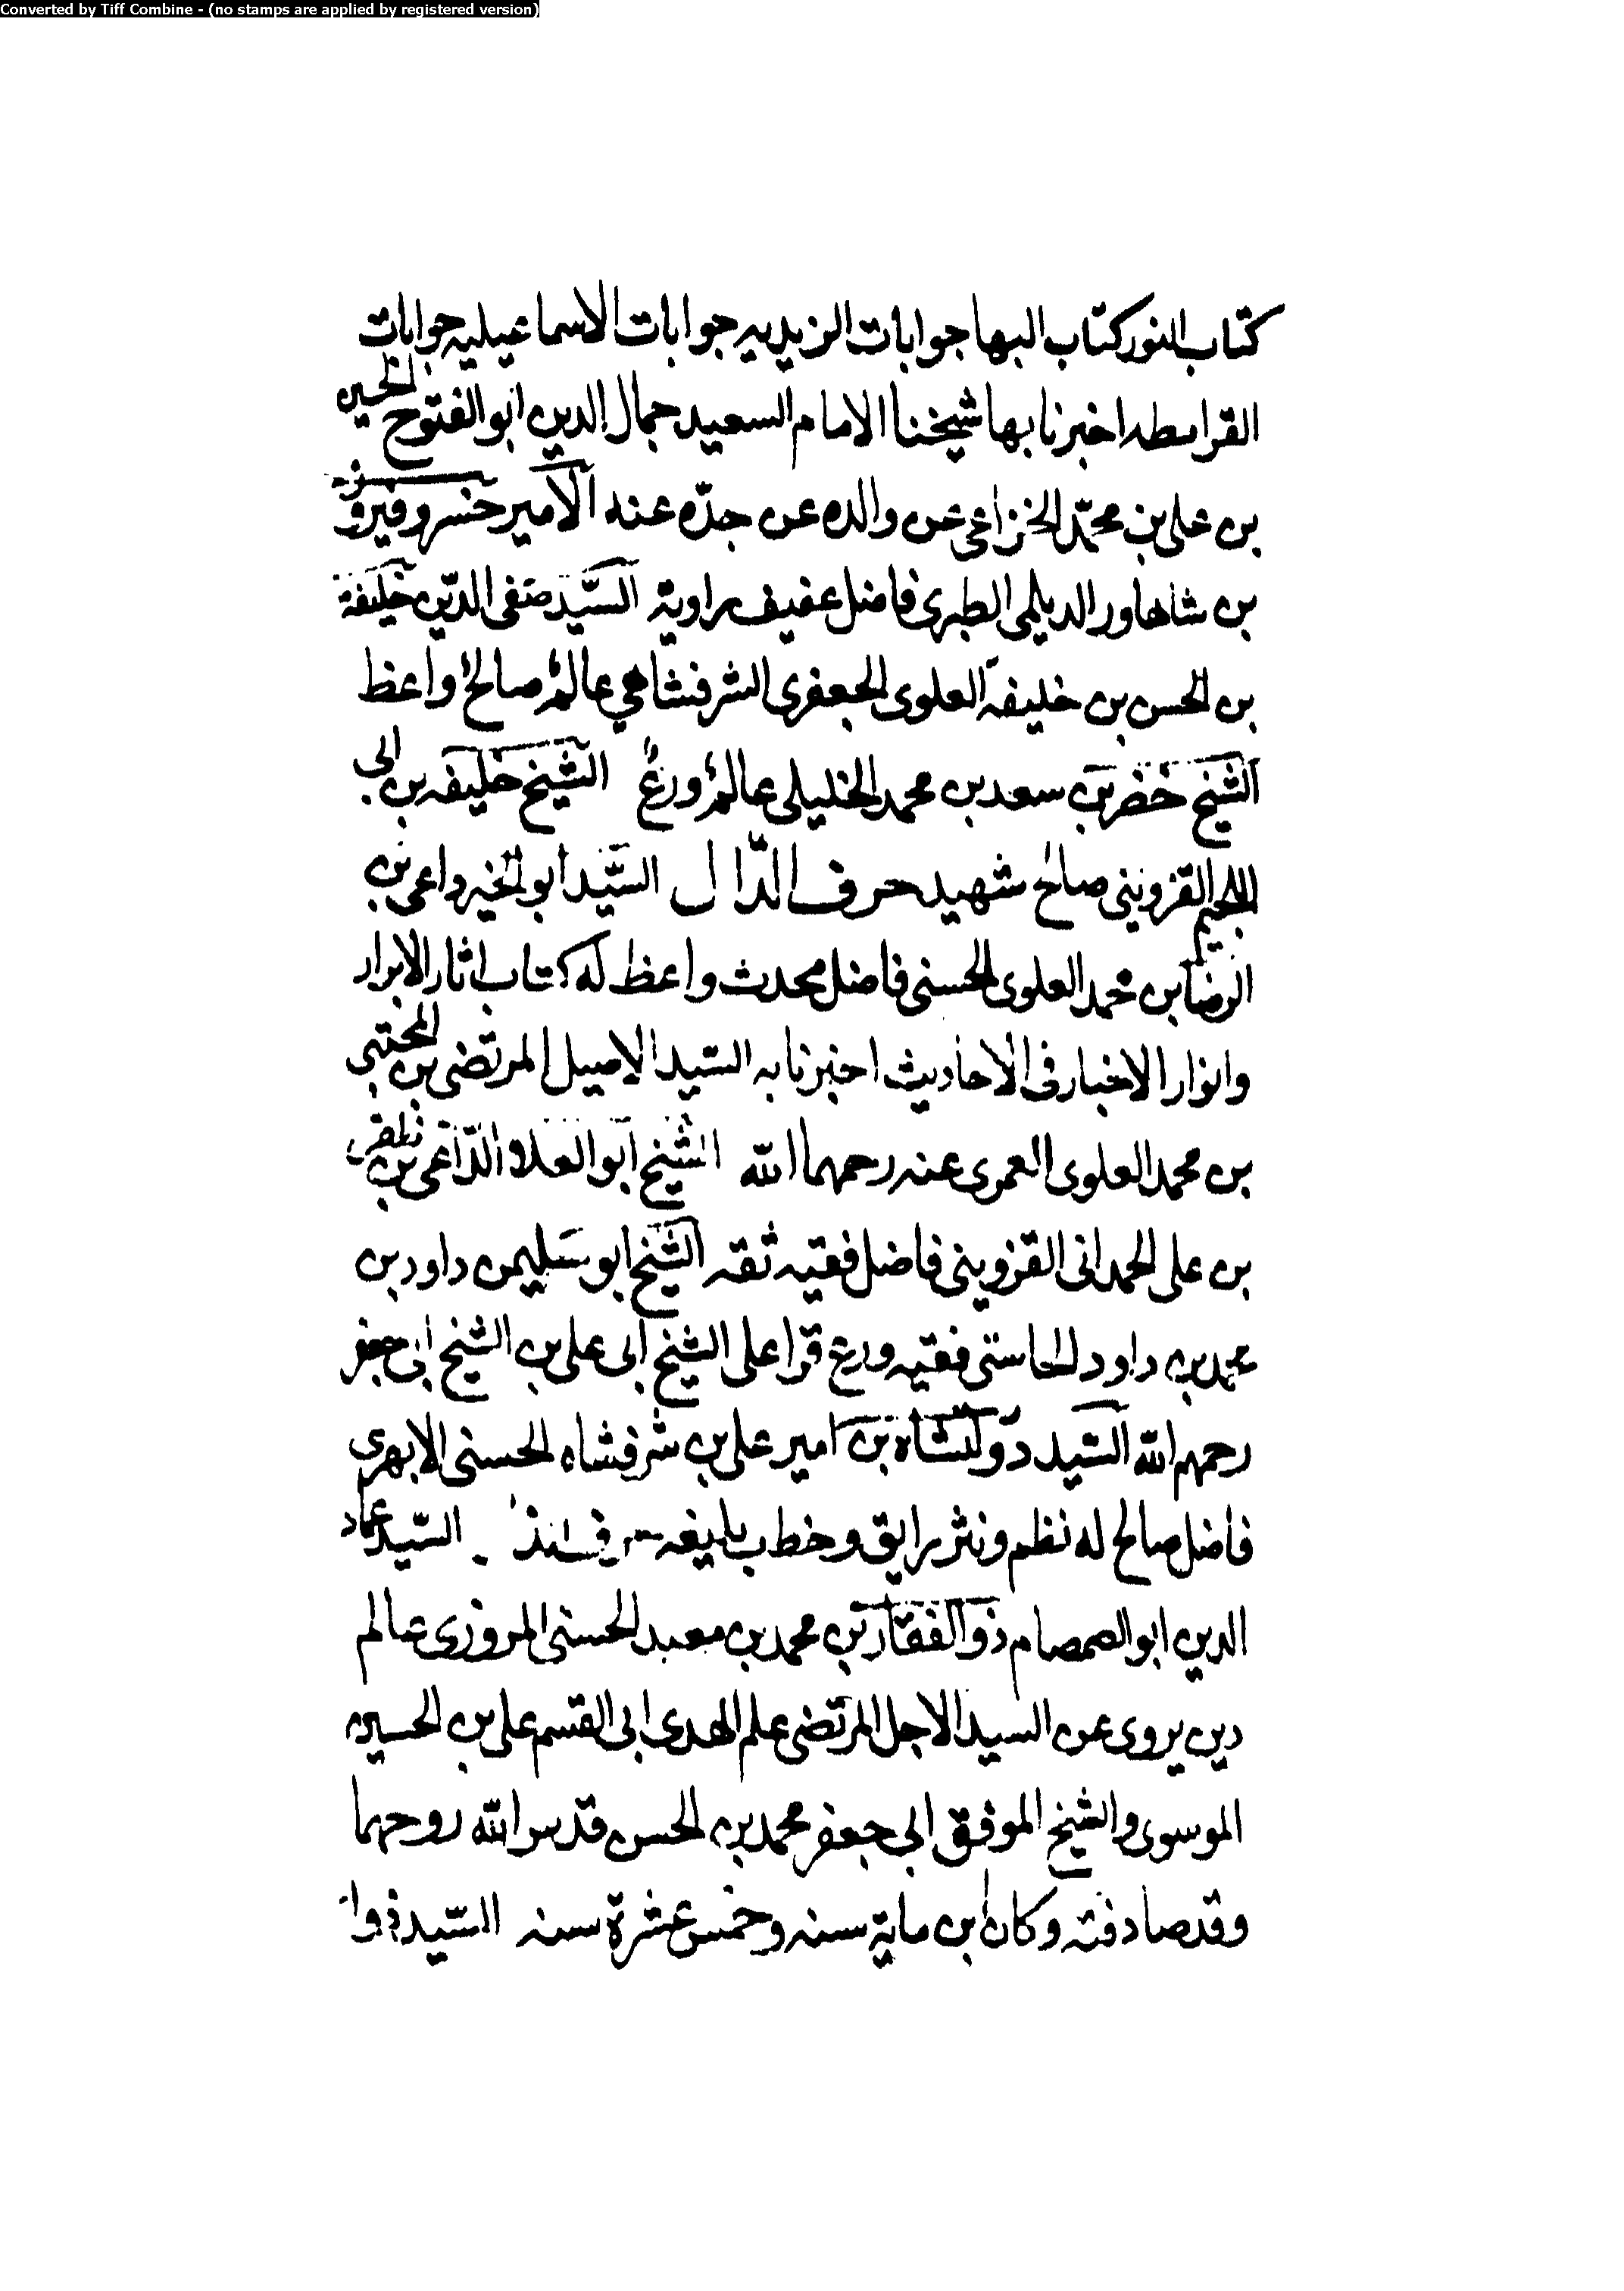 Converted by Tiff Combine - (no stamps are applied by registered version)
كتاب النور كتاب البها جوابات الزيديه جوابات الاسماعيليه جوابات
القرامطه اخبرنا بها شيخنا الامام السعيد جمال الدين ابو الفتوح الحسين
بن علی بن محمّد الخزاعی عن والده عن جدّه عنه الامير خسرو فيروز
بن شاهاور الديلمی الطبری فاضل عفيف راوية السيّد صفی الدّين خليفة
بن الحسن بن خليفه العلوی الجعفری الشرفشاهی عالمٌ صالحٌ واعظ
الشيخ خضر بن سعد بن محمد الخليلی عالمٌ ورعٌ الشيخ خليفه بن ابی
اللجيم القزوينی صالح شهيد حرف الدّال السّيد ابو الخير داعی بن
الرضا بن محمد العلوی الحسنی فاضل محدث واعظ له كتاب اثار الابرار
وانوار الاخبار فی الاحاديث اخبرنا به السّيد الاصيل المرتضی بن المجتبی
بن محمد العلوی العمری عنه رحمهما الله الشيخ ابو العلاء الدّاعی بن ظفر
بن علی الحمدانی القزوينی فاضل فقيه ثقه الشيخ ابو سليمن داود بن
محمد بن داود الحاستی فقيه ورع قرا علی الشيخ ابی علی بن الشيخ ابی جعفر
رحمهم الله السّيد دولتشاه بن امير علی بن شرفشاه الحسنی الابهری
فاضل صالح له نظم ونثر رايق وخطب بليغه السّيد عماد
الدين ابو الصمصام ذو الفقار بن محمد بن معبد الحسنی المروزی عالم
دين يروی عن السيد الاجل المرتضی علم الهدی ابی القسم علی بن الحسين
الموسوی والشيخ الموفق ابی جعفر محمد بن الحسن قدس الله روحهما
وقد صادفته وكان ابن ماية سنه وخمس عشرة سنه السّيد ذو ا